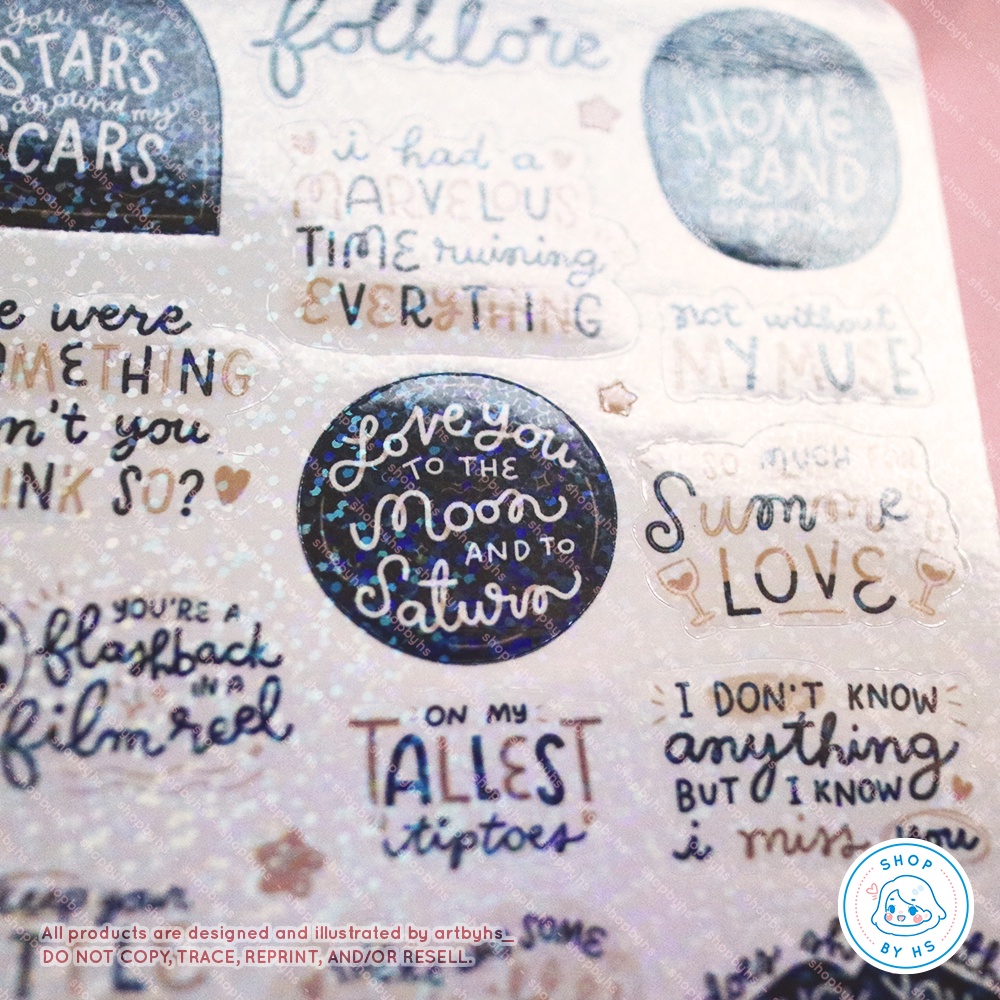 you drew
STARS
around my
SCARS
folklore
HOME
LAND
i had a
MARVELOUS
TIME ruining
EVERYTHING
not without
MY MUSE
e were
OMETHING
n't you
INK SO?
Love you
TO THE
Moon
AND TO
Saturn
SO MUCH
Summer
LOVE
YOU'RE A
flashback
IN A
film reel
ON MY
TALLEST
tiptoes
I DON'T KNOW
anything
BUT I KNOW
i miss you
your
SOME
All products are designed and illustrated by artbyhs_
DO NOT COPY, TRACE, REPRINT, AND/OR RESELL.
SHOP
BY HS